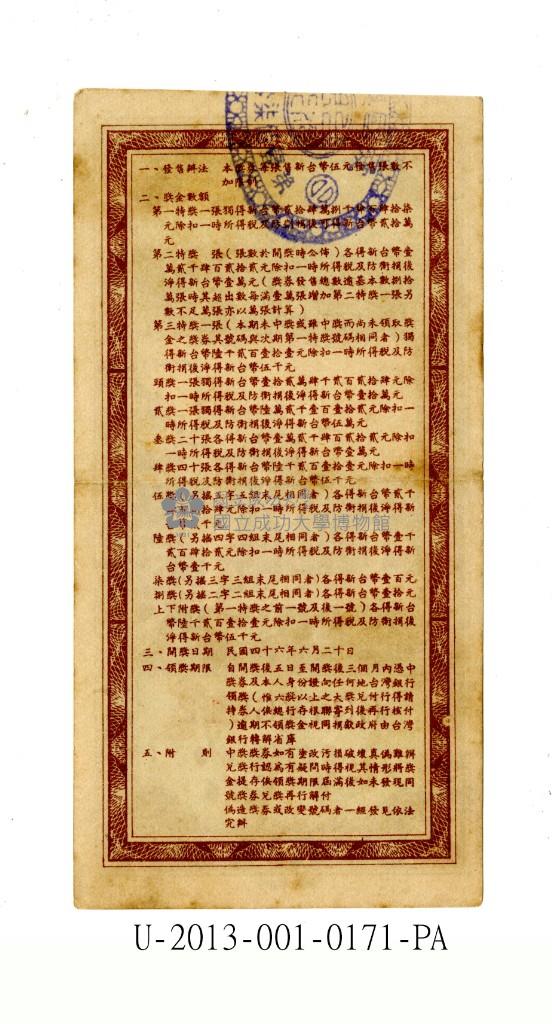 一、發售辦法 本獎券每張售新台幣伍元發售張數不
加限制
二、獎金數額
第一特獎一張獨得新台幣貳拾肆萬捌千肆百肆拾柒
元除扣一時所得稅及防衛捐後淨得新台幣貳拾萬
元
第二特獎 張(張數於開獎時公佈)各得新台幣壹
萬貳千肆百貳拾貳元除扣一時所得稅及防衛捐後
淨得新台幣壹萬元(獎券發售總數逾基本數捌拾
萬張時其超出數每滿壹萬張增加第二特獎一張另
數不足萬張亦以萬張計算)
第三特獎一張(本期未中獎或雖中獎而尚未領取獎
金之獎券其號碼與次期第一特獎號碼相同者)獨
得新台幣陸千貳百壹拾壹元除扣一時所得稅及防
衛捐後淨得新台幣伍千元
頭獎一張獨得新台幣壹拾貳萬肆千貳百貳拾肆元除
扣一時所得稅及防衛捐後淨得新台幣壹拾萬元
貳獎一張獨得新台幣陸萬貳千壹百壹拾貳元除扣一
時所得稅及防衛捐後淨得新台幣伍萬元
叁獎二十張各得新台幣壹萬貳千肆百貳拾貳元除扣
一時所得稅及防衛捐後淨得新台幣壹萬元
肆獎四十張各得新台幣陸千貳百壹拾壹元除扣一時
所得稅及防衛捐後淨得新台幣伍千元
伍獎(另搖五字五組末尾相同者)各得新台幣貳千
一時所得稅及防衛捐後淨得新台幣
千元
國立成功大學博物館
陸獎(另搖四字四組末尾相同者)各得新台幣壹千
貳百肆拾貳元除扣一時所得稅及防衛捐後淨得新
台幣壹千元
柒獎(另搖三字三組末尾相同者)各得新台幣壹百元
捌獎(另搖二字二組末尾相同者)各得新台幣貳拾元
上下附獎(第一特獎之前一號及後一號)各得新台
幣陸千貳百壹拾壹元除扣一時所得稅及防衛捐後
淨得新台幣伍千元
三、開獎日期 民國四十六年六月二十日
四、領獎期限 自開獎後五日至開獎後三個月內憑中
獎券及本人身份證向任何地台灣銀行
領獎(惟六獎以上之大獎兌付行得請
持券人俟總行存根聯寄到後再行核付
)逾期不領獎金視同捐獻政府由台灣
銀行轉解省庫
五、附 則 中獎獎券如有塗改污損破壞真偽難辨
兌獎行認為有疑問時得視其情形將獎
金提存俟領獎期限屆滿後如未發現同
號獎券兌獎再行解付
偽造獎券或改變號碼者一經發見依法
究辦
U-2013-001-0171-PA